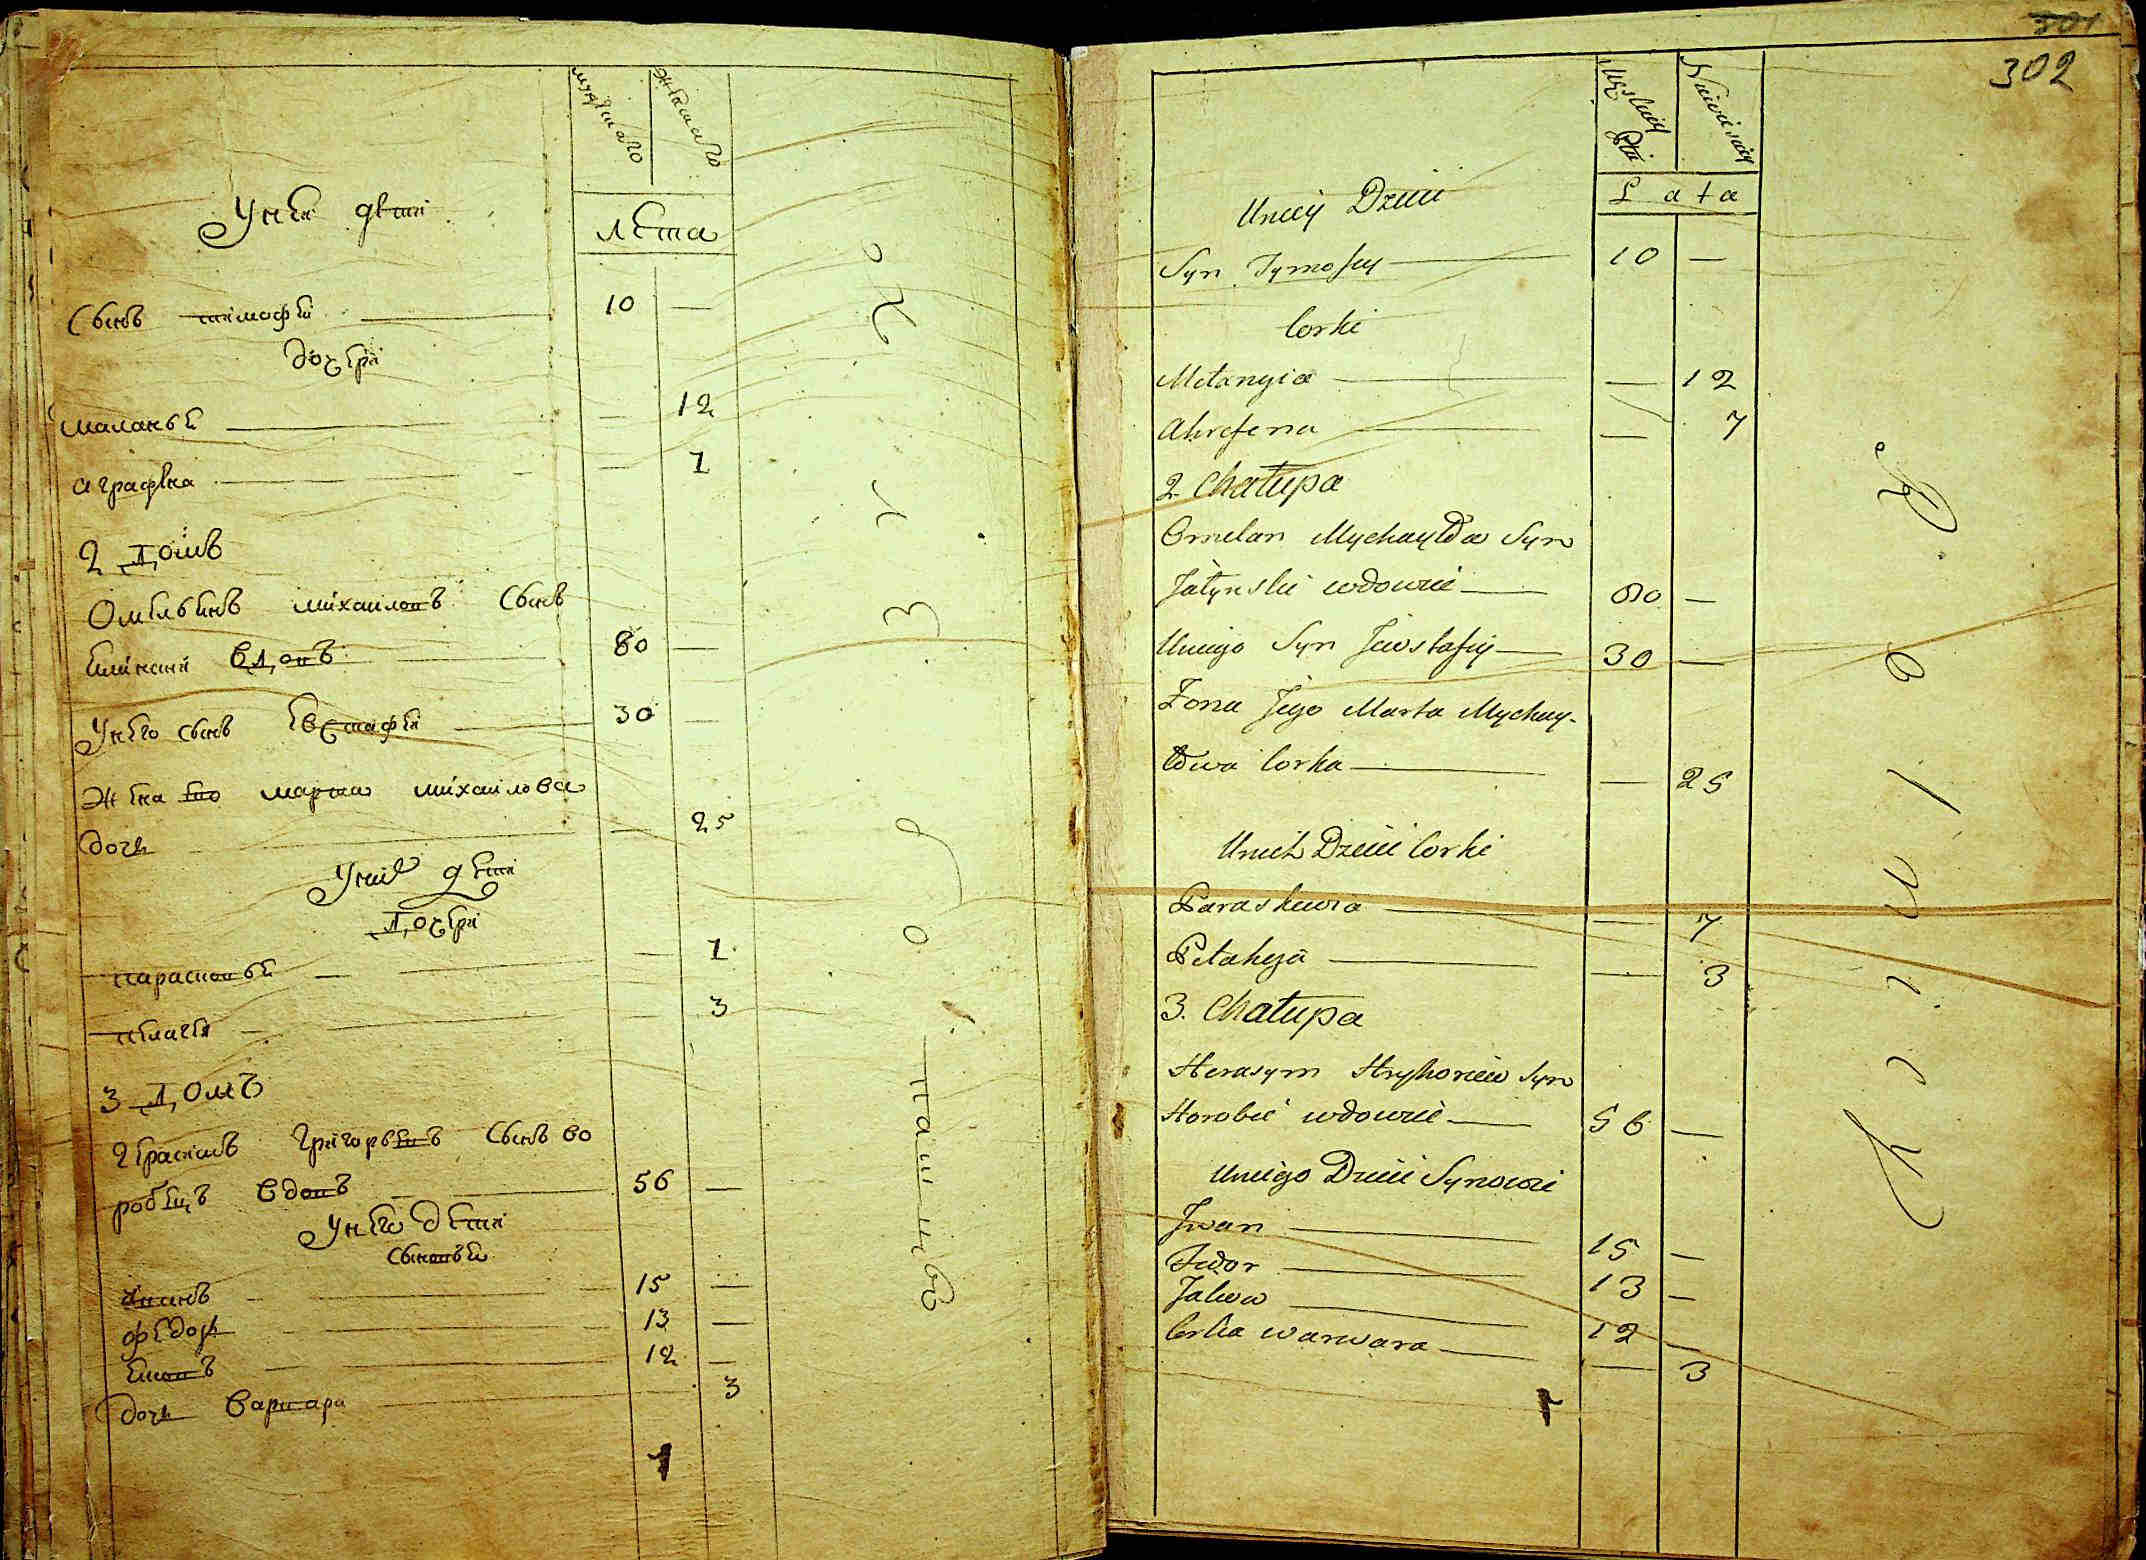 мужска го
женскаго
лета
Унея дети
Сынъ тимофей 10 —
дочери
маланья — 12
аграфена — 7
2 Домъ
Омельянъ михайловъ Сынъ
вдовъ 80 —
Унего сынъ Евстафей 30 —
Жена его марта михайлова
дочь — 25
Унихъ дети
Дочери
парасковья — 7
пелагея — 3
3 Домъ
Герасимъ григорьевъ Сынъ во
робецъ вдовъ 56 —
Унего дети
Сыновья
иванъ 15 —
федоръ 13 —
12 —
дочь варвара 3
301
302
Męskiey Płci
Niewieściey
Lata
Unieÿ Dzieci
Syn Tymofiey 10 —
Corki
Mełanyia — 12
Ahrefena — 7
2 Chałupa
Omelan Mychayłow Syn
wdowiec 80 —
Uniego Syn Jewstafiy 30 —
Żona Jego Marta Mychay-
łowa Corka — 25
Unich Dzieci Corki
Paraskewia — 7
Pełaheja — 3
3. Chałupa
Herasym Hryhoriew Syn
Horobeć wdowiec 56 —
Uniego Dzieci Synowie
Iwan 15 —
Fedor 13 —
12 —
Corka warwara — 3